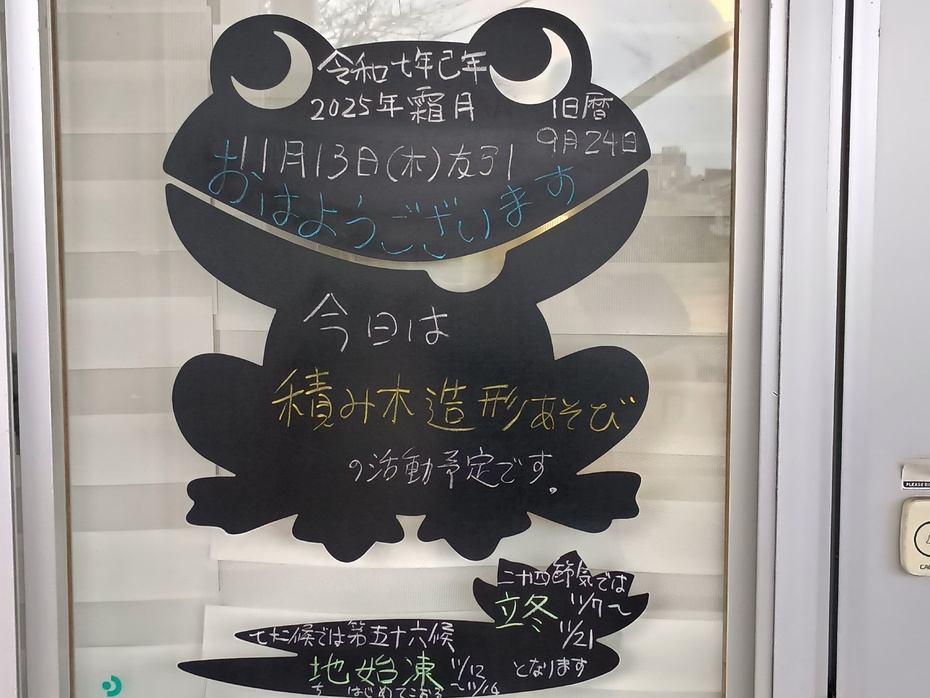 令和七年己年
2025年霜月
旧暦
9月24日
11月13日(木)友引
おはようございます
今日は
積み木造形あそび
の活動予定です。
二十四節気では
立冬 11/7〜
11/21
七十二候では第五十六候
地始凍 11/12
〜11/16
ち はじめてこおる
となります
PLEASE